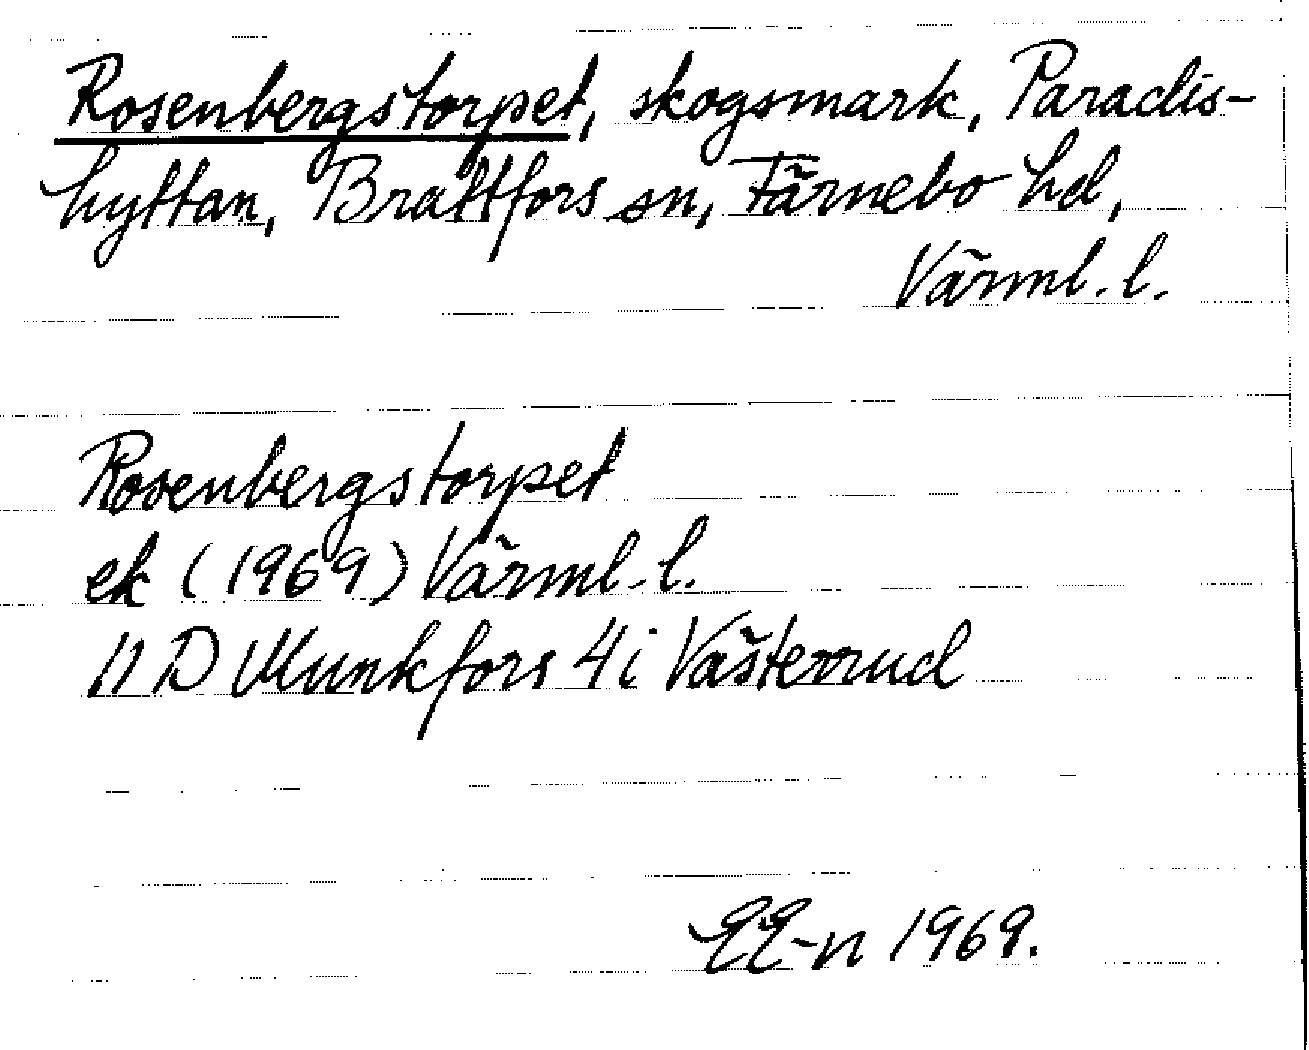 Rosenbergstorpet, skogsmark, Paradis-
hyttan, Brattfors sn, Färnebo hd,
Värml. l.
Rosenbergstorpet
ek (1969) Värml. l.
11 D Munkfors 4 i Västerrud
EE-n 1969.